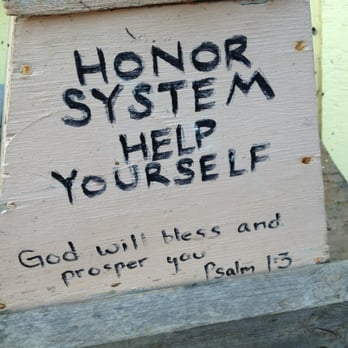 HONOR
SYSTEM
HELP
YOURSELF
God will bless and
prosper you
Psalm 1:3